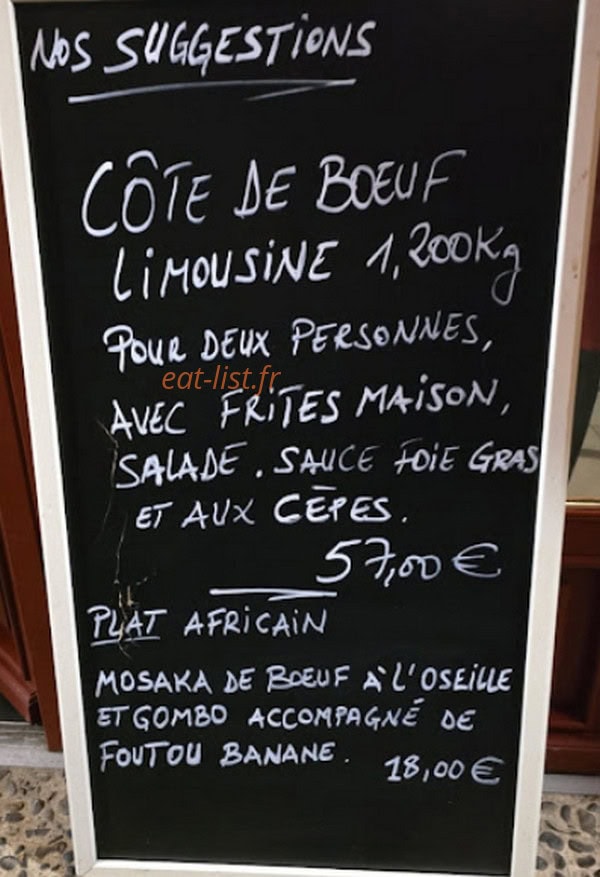 NOS SUGGESTIONS
CÔTE DE BOEUF
LIMOUSINE 1,200Kg
POUR DEUX PERSONNES,
eat-list.fr
AVEC FRITES MAISON,
SALADE. SAUCE FOIE GRAS
ET AUX CÈPES.
57,00 €
PLAT AFRICAIN
MOSAKA DE BOEUF À L'OSEILLE
ET GOMBO ACCOMPAGNÉ DE
FOUTOU BANANE. 18,00 €